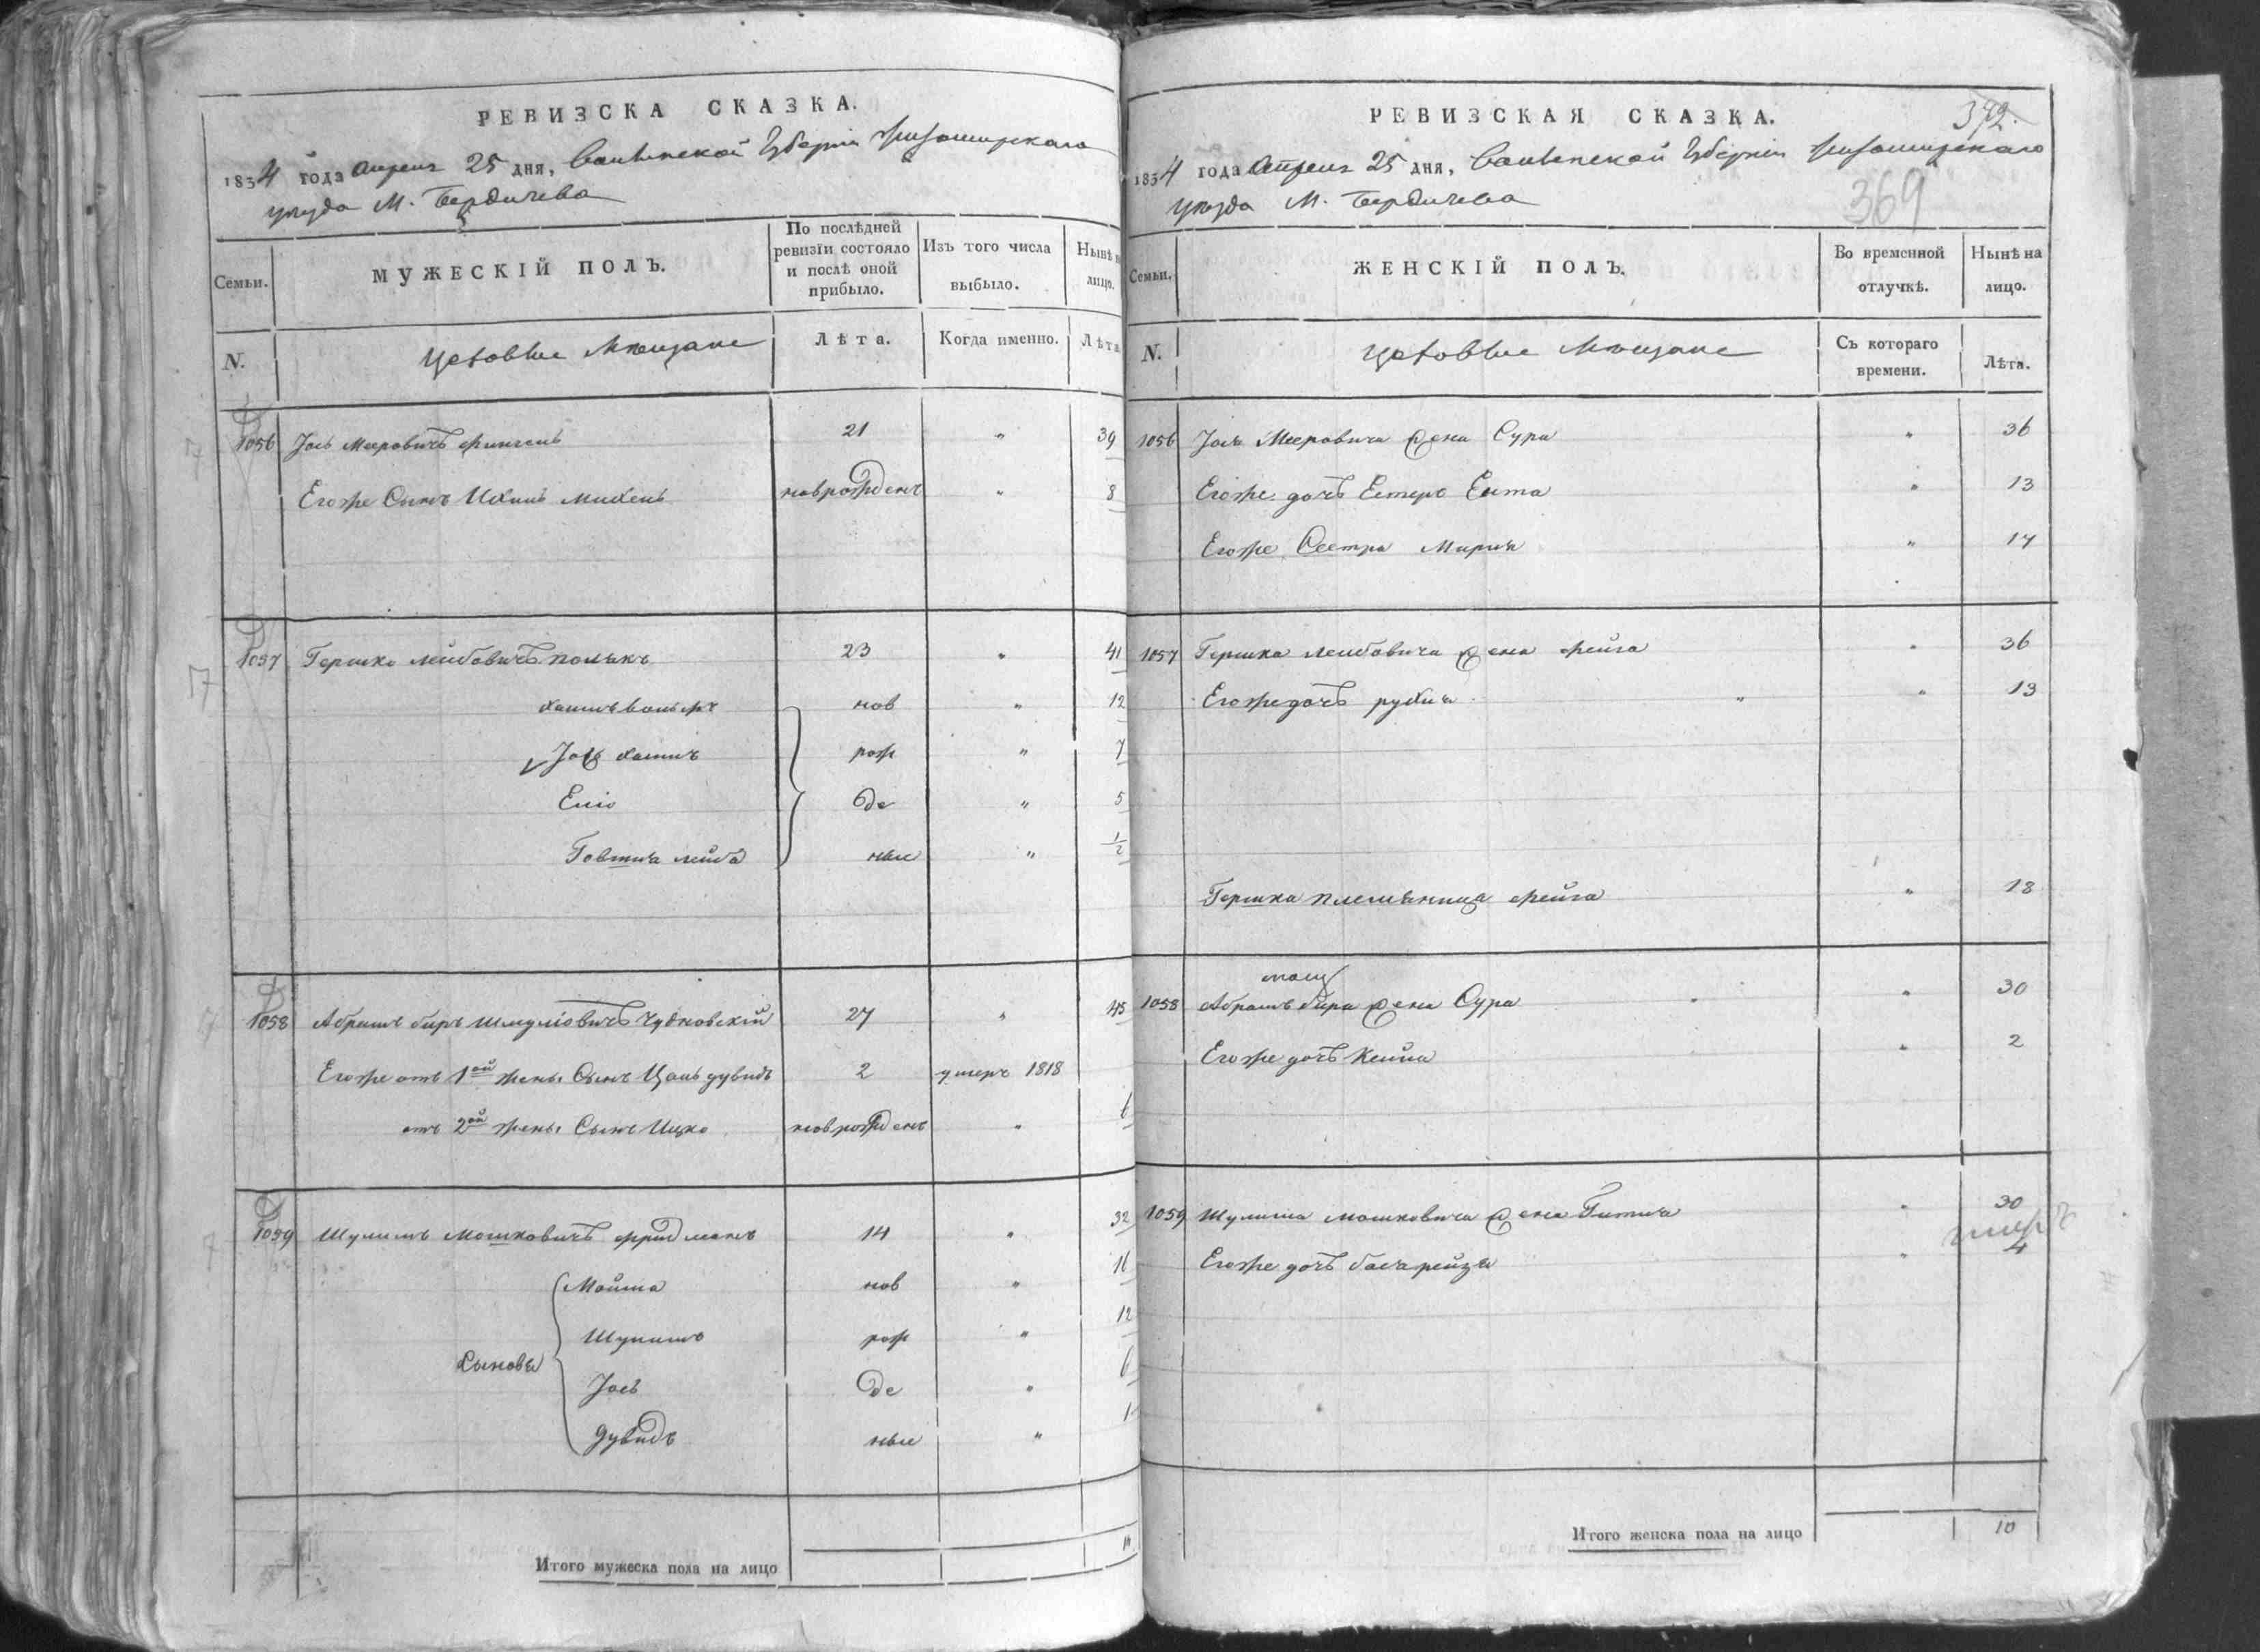 РЕВИЗСКА СКАЗКА.
1834 года Апреля 25 дня, Волынской Губернии Житомирского
уезда М. Бердичева
Семьи.
МУЖЕСКІЙ ПОЛЪ.
По послѣдней ревизіи состояло и послѣ оной прибыло.
Изъ того числа выбыло.
Нынѣ на лицо.
N.
Цеховые Мещане
Лѣта.
Когда именно.
Лѣта
1056 Іось Мееровичъ 21 " 39
Егоже Сынъ Ихилъ Михель новорожденъ " 8
1057 Гершко Лейбовичъ Полякъ 23 " 41
Хаимъ Вольфъ нов " 12
Іось Хаимъ рож " 7
Еліо де " 5
лейба ные " 1/2
1058 Абрамъ Беръ Шмуліовичъ Чудновскій 27 " 45
Егоже отъ 1ой жены Сынъ Цаль дувидъ 2 умеръ 1818
отъ 2ой жены Сынъ Ицко новорожденъ " 6
1059 Шулимъ Мошковичъ Фридманъ 14 " 32
Мойша нов " 16
рож " 12
Сыновья
Іось де " 6
Дувидъ ные " 1
Итого мужеска пола на лицо
РЕВИЗСКАЯ СКАЗКА.
372.
1834 года Апреля 25 дня, Волынской Губерніи Житомирского
уезда М. Бердичева
369
Семьи.
ЖЕНСКІЙ ПОЛЪ.
Во временной отлучкѣ.
Нынѣ на лицо.
N.
Цеховые Мещане
Съ котораго времени.
Лѣта.
1056 Іося Мееровича жена Сура " 36
Егоже дочь Естеръ Ента " 13
Егоже Сестра Мирля " 17
1057 Гершка Лейбовича жена Фейга " 36
Егоже дочь рухля " " 13
Гершка племяница Фейга " 18
1058 Абрамъ Бера жена Сура " 30
Егоже дочь Кейла " 2
1059 Шулима Мошковича жена Гитля " 30
Егоже дочь бася рейзя " 4
Итого женска пола на лицо 10